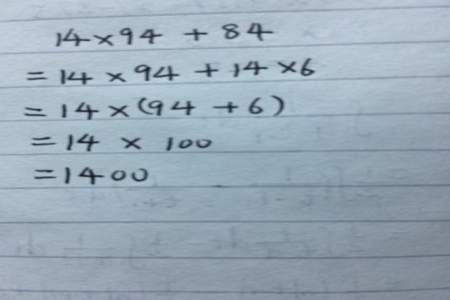 14×94 + 84
= 14 × 94 + 14 ×6
= 14 × (94 + 6)
= 14 × 100
= 1400